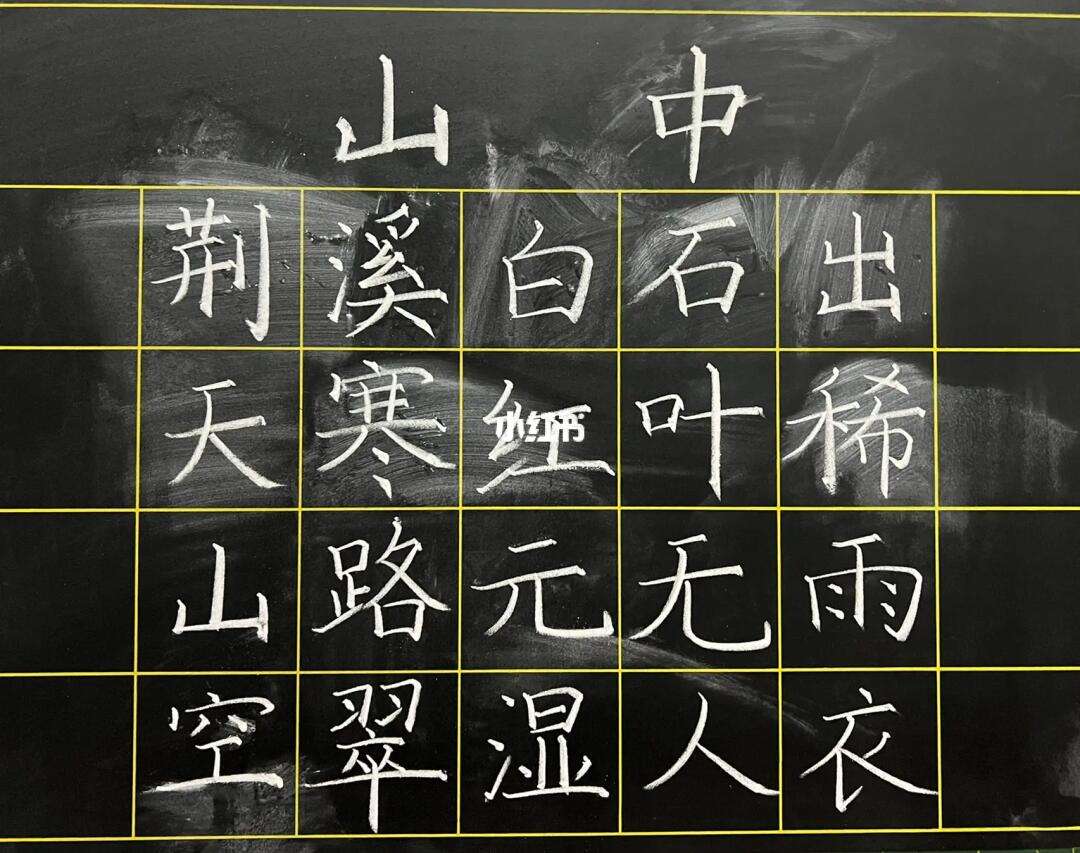 山中
荆溪白石出
天寒红叶稀
山路元无雨
空翠湿人衣
小红书